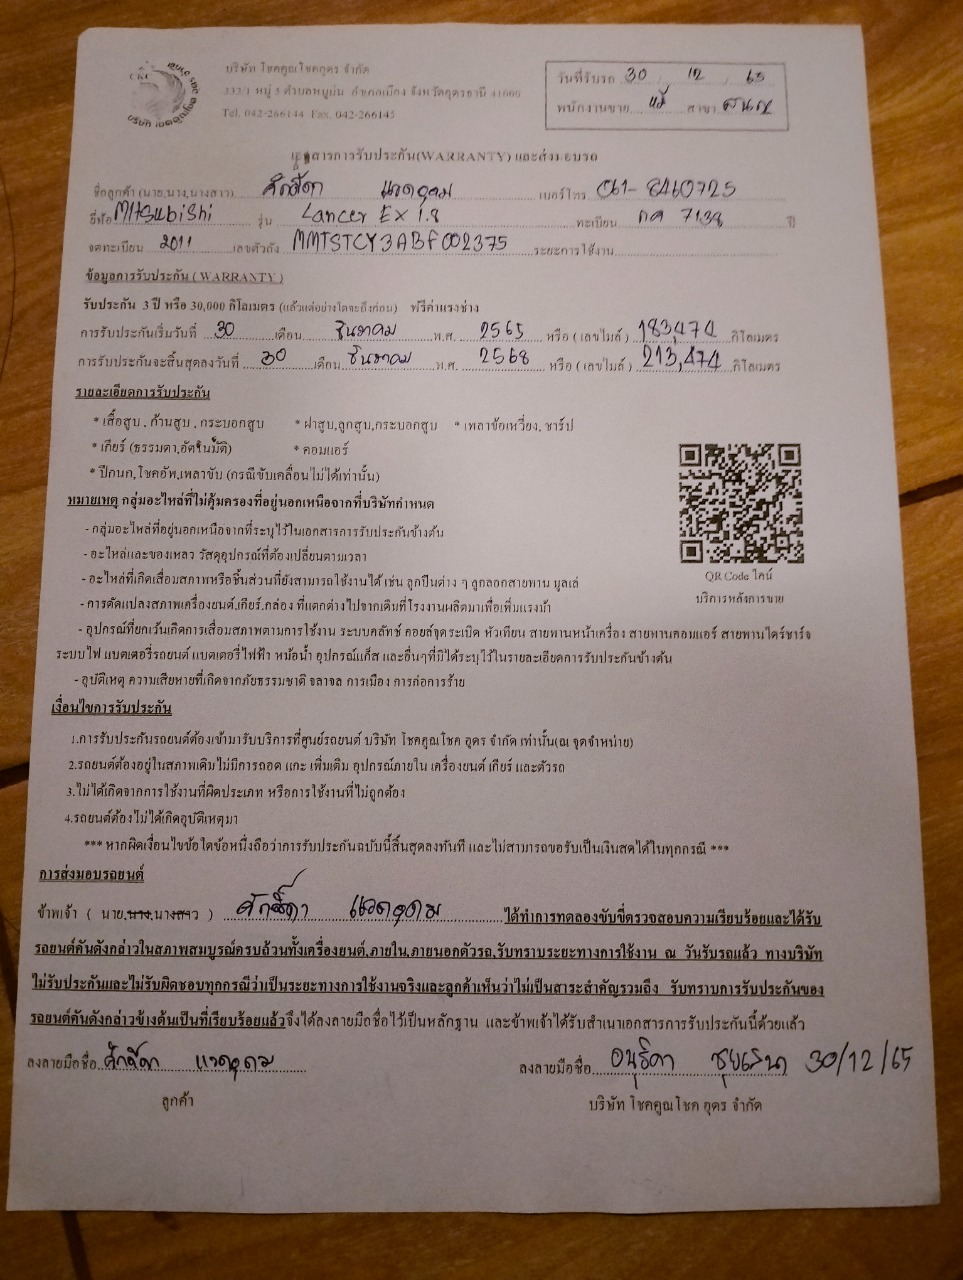 CKC
บริษัท โชคคูณโชคอุดร จำกัด
332/1 หมู่ 5 ตำบลหมูม่น อำเภอเมือง จังหวัดอุดรธานี 41000
Tel. 042-266144 Fax. 042-266145
วันที่รับรถ 30 / 12 / 65
พนักงานขาย สาขา
เอกสารการรับประกัน(WARRANTY) และส่งมอบรถ
ชื่อลูกค้า (นาย,นาง,นางสาว) ศักสิดา เบอร์โทร 061-8460725
ยี่ห้อ Mitsubishi รุ่น Lancer EX 1.8 ทะเบียน กค 7138 ปี
จดทะเบียน 2011 เลขตัวถัง MMTSTCY3ABF002375 ระยะการใช้งาน
ข้อมูลการรับประกัน ( WARRANTY )
รับประกัน 3 ปี หรือ 30,000 กิโลเมตร (แล้วแต่อย่างใดจะถึงก่อน) ฟรีค่าแรงช่าง
การรับประกันเริ่มวันที่ 30 เดือน ธันวาคม พ.ศ. 2565 หรือ ( เลขไมล์ ) 183,474 กิโลเมตร
การรับประกันจะสิ้นสุดลงวันที่ 30 เดือน ธันวาคม พ.ศ. 2568 หรือ ( เลขไมล์ ) 213,474 กิโลเมตร
รายละเอียดการรับประกัน
* เสื้อสูบ , ก้านสูบ , กระบอกสูบ * ฝาสูบ,ลูกสูบ,กระบอกสูบ * เพลาข้อเหวี่ยง, ชาร์ป
* เกียร์ (ธรรมดา,อัตโนมัติ) * คอมแอร์
* ปีกนก,โชคอัพ,เพลาขับ (กรณีขับเคลื่อนไม่ได้เท่านั้น)
หมายเหตุ กลุ่มอะไหล่ที่ไม่คุ้มครองที่อยู่นอกเหนือจากที่บริษัทกำหนด
- กลุ่มอะไหล่ที่อยู่นอกเหนือจากที่ระบุไว้ในเอกสารการรับประกันข้างต้น
- อะไหล่และของเหลว วัสดุอุปกรณ์ที่ต้องเปลี่ยนตามเวลา
- อะไหล่ที่เกิดเสื่อมสภาพหรือชิ้นส่วนที่ยังสามารถใช้งานได้ เช่น ลูกปืนต่าง ๆ ลูกลอกสายพาน มูเล่
- การดัดแปลงสภาพเครื่องยนต์,เกียร์,กล่อง ที่แตกต่างไปจากเดิมที่โรงงานผลิตมาเพื่อเพิ่มแรงม้า
QR Code ไลน์
บริการหลังการขาย
- อุปกรณ์ที่ยกเว้นเกิดการเสื่อมสภาพตามการใช้งาน ระบบคลัทช์ คอยล์จุดระเบิด หัวเทียน สายพานหน้าเครื่อง สายพานคอมแอร์ สายพานไดร์ชาร์จ
ระบบไฟ แบตเตอรี่รถยนต์ แบตเตอรี่ไฟฟ้า หม้อน้ำ อุปกรณ์แก็ส และอื่นๆที่มิได้ระบุไว้ในรายละเอียดการรับประกันข้างต้น
- อุบัติเหตุ ความเสียหายที่เกิดจากภัยธรรมชาติ จลาจล การเมือง การก่อการร้าย
เงื่อนไขการรับประกัน
1.การรับประกันรถยนต์ต้องเข้ามารับบริการที่ศูนย์รถยนต์ บริษัท โชคคูณโชค อุดร จำกัด เท่านั้น(ณ จุดจำหน่าย)
2.รถยนต์ต้องอยู่ในสภาพเดิมไม่มีการถอด แกะ เพิ่มเติม อุปกรณ์ภายใน เครื่องยนต์ เกียร์ และตัวรถ
3.ไม่ได้เกิดจากการใช้งานที่ผิดประเภท หรือการใช้งานที่ไม่ถูกต้อง
4.รถยนต์ต้องไม่ได้เกิดอุบัติเหตุมา
*** หากผิดเงื่อนไขข้อใดข้อหนึ่งถือว่าการรับประกันฉบับนี้สิ้นสุดลงทันที และไม่สามารถขอรับเป็นเงินสดได้ในทุกกรณี ***
การส่งมอบรถยนต์
ข้าพเจ้า ( นาย,นาง,นางสาว ) ศักสิดา ได้ทำการทดลองขับขี่ตรวจสอบความเรียบร้อยและได้รับ
รถยนต์คันดังกล่าวในสภาพสมบูรณ์ครบถ้วนทั้งเครื่องยนต์,ภายใน,ภายนอกตัวรถ,รับทราบระยะทางการใช้งาน ณ วันรับรถแล้ว ทางบริษัท
ไม่รับประกันและไม่รับผิดชอบทุกกรณีว่าเป็นระยะทางการใช้งานจริงและลูกค้าเห็นว่าไม่เป็นสาระสำคัญรวมถึง รับทราบการรับประกันของ
รถยนต์คันดังกล่าวข้างต้นเป็นที่เรียบร้อยแล้วจึงได้ลงลายมือชื่อไว้เป็นหลักฐาน และข้าพเจ้าได้รับสำเนาเอกสารการรับประกันนี้ด้วยแล้ว
ลงลายมือชื่อ ศักสิดา ลงลายมือชื่อ 30/12/65
ลูกค้า บริษัท โชคคูณโชค อุดร จำกัด